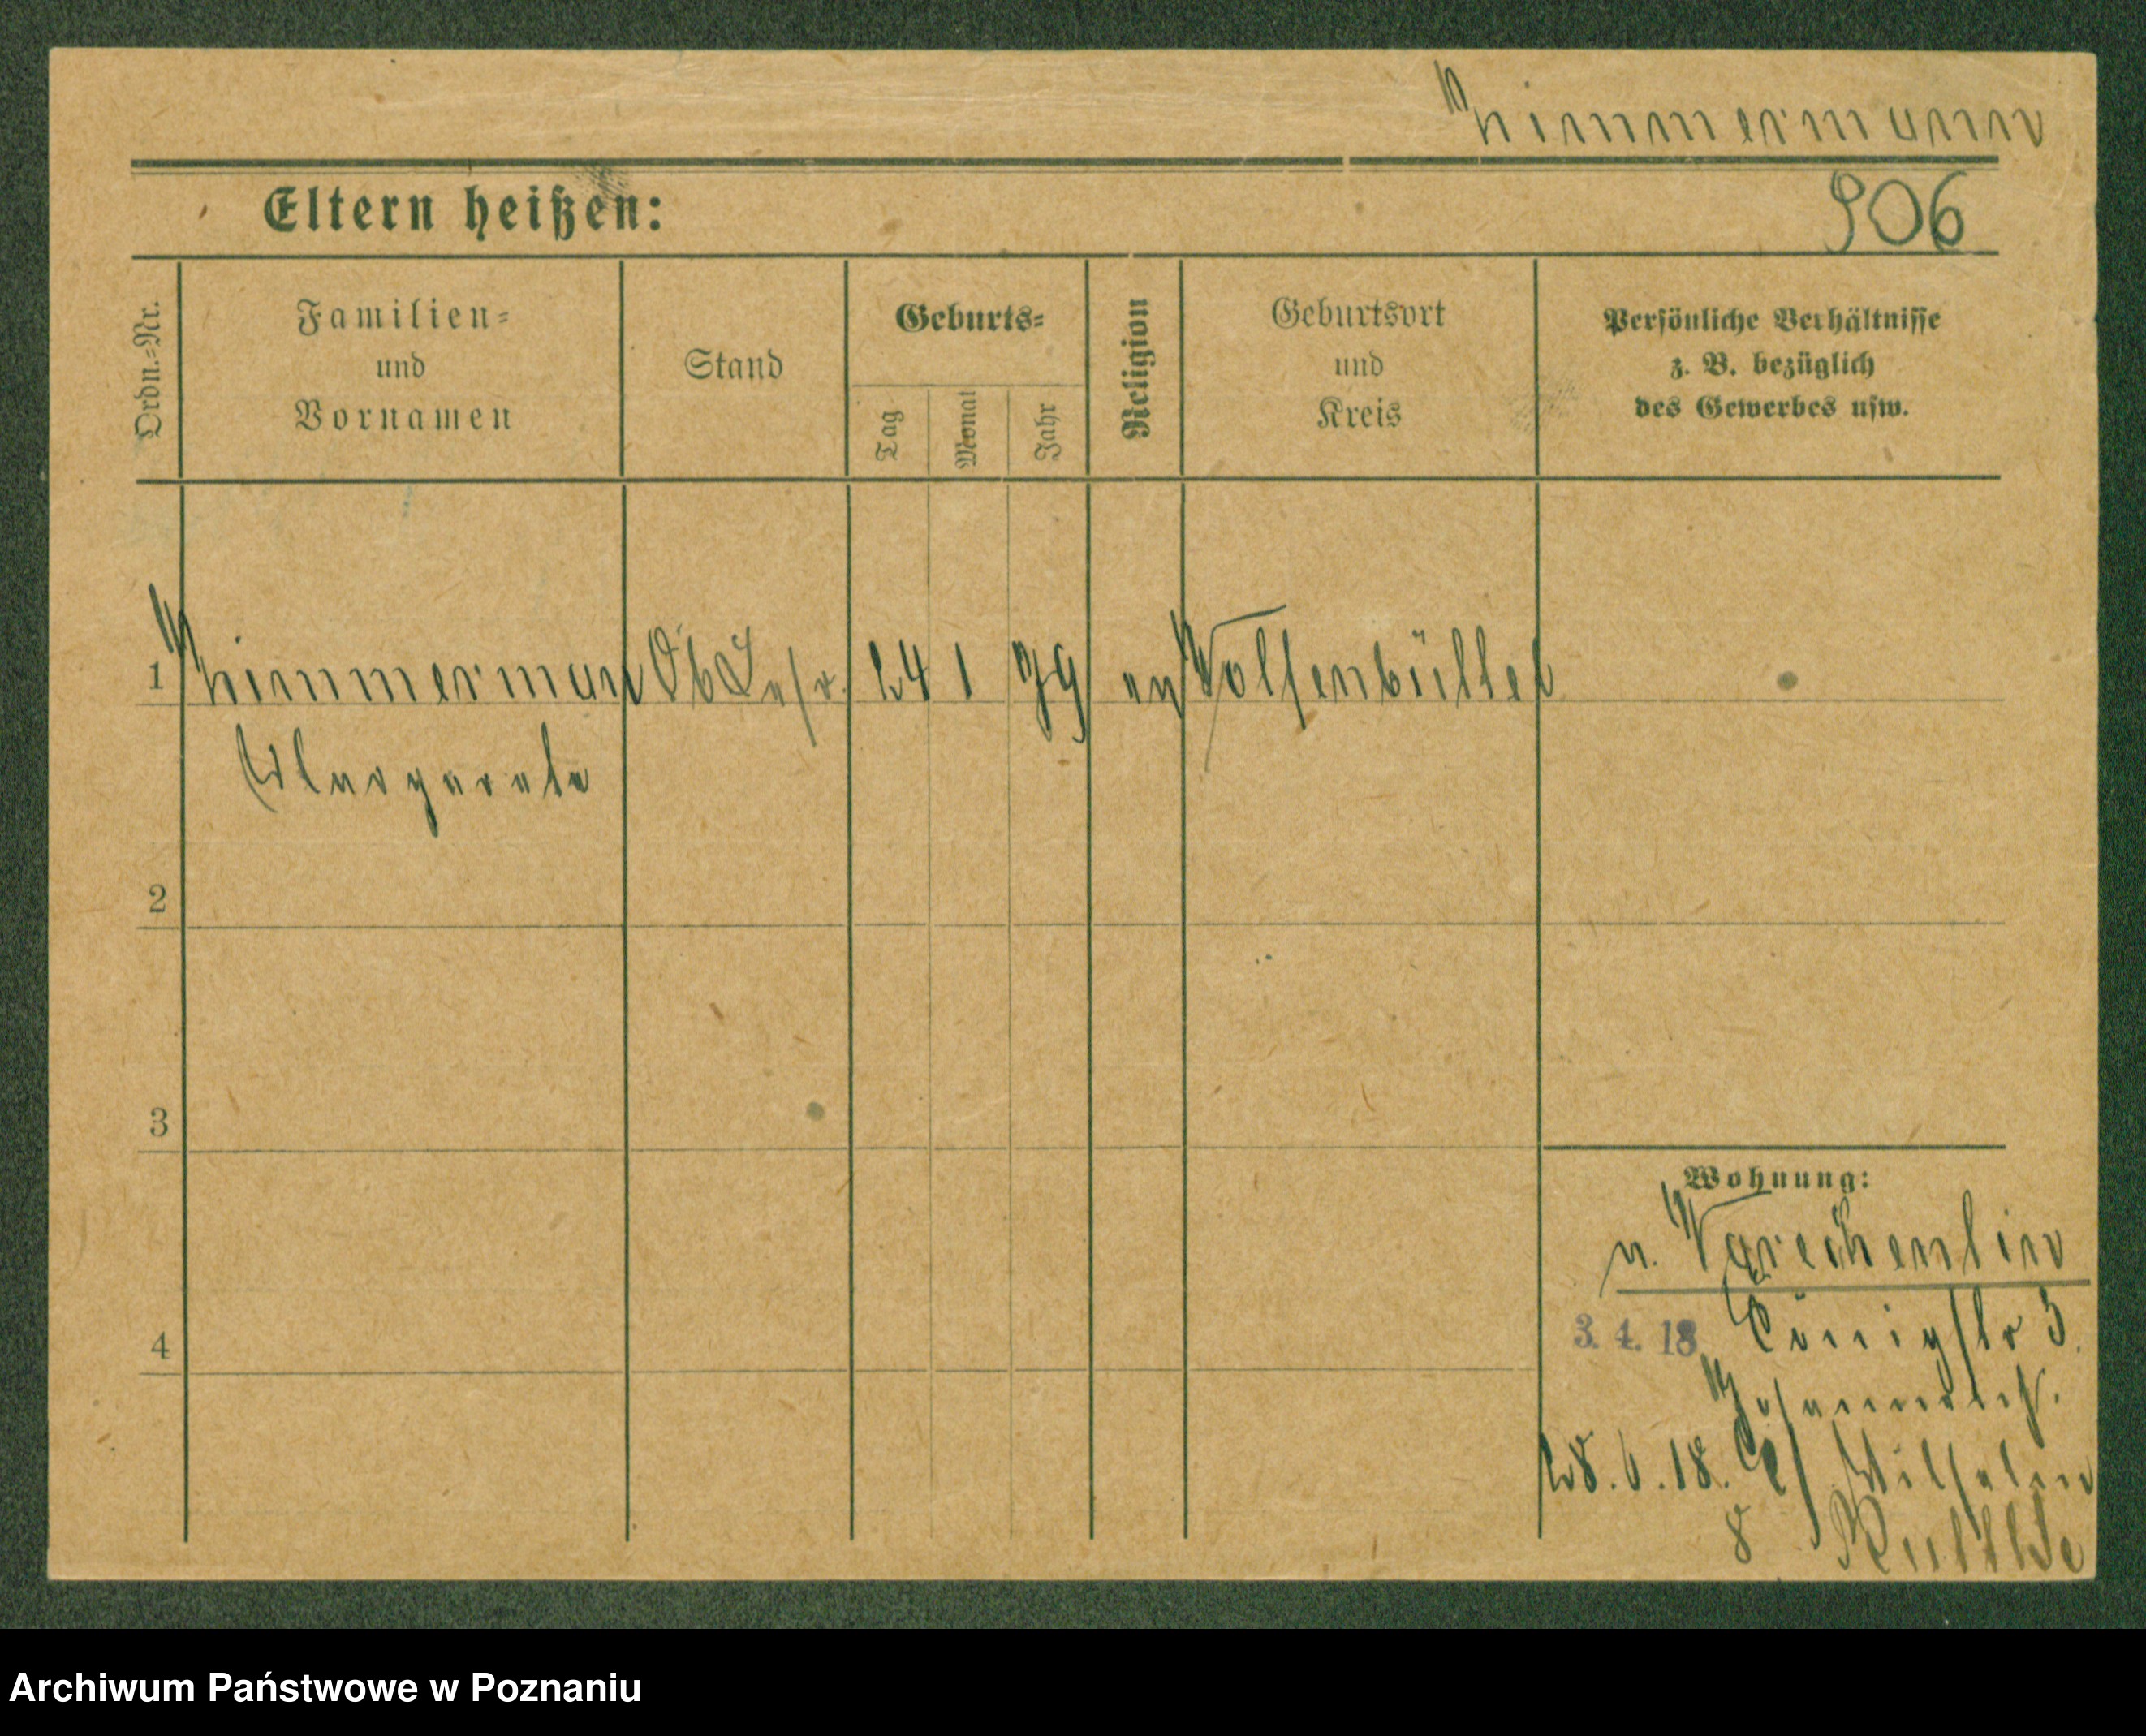 Zimmermann
Eltern heißen:
906
Ordn.-Nr.
Familien-
und
Vornamen
Stand
Geburts-
Tag
Monat
Jahr
Religion
Geburtsort
und
Kreis
Persönliche Verhältnisse
z. B. bezüglich
des Gewerbes usw.
1 Zimmermann 24 1 79 ev Wolfenbüttel
Margarete
2
3
4
Wohnung:
v.
3. 4. 18 Königstr 3.
28. 6. 18. Wilhelm
8
Archiwum Państwowe w Poznaniu